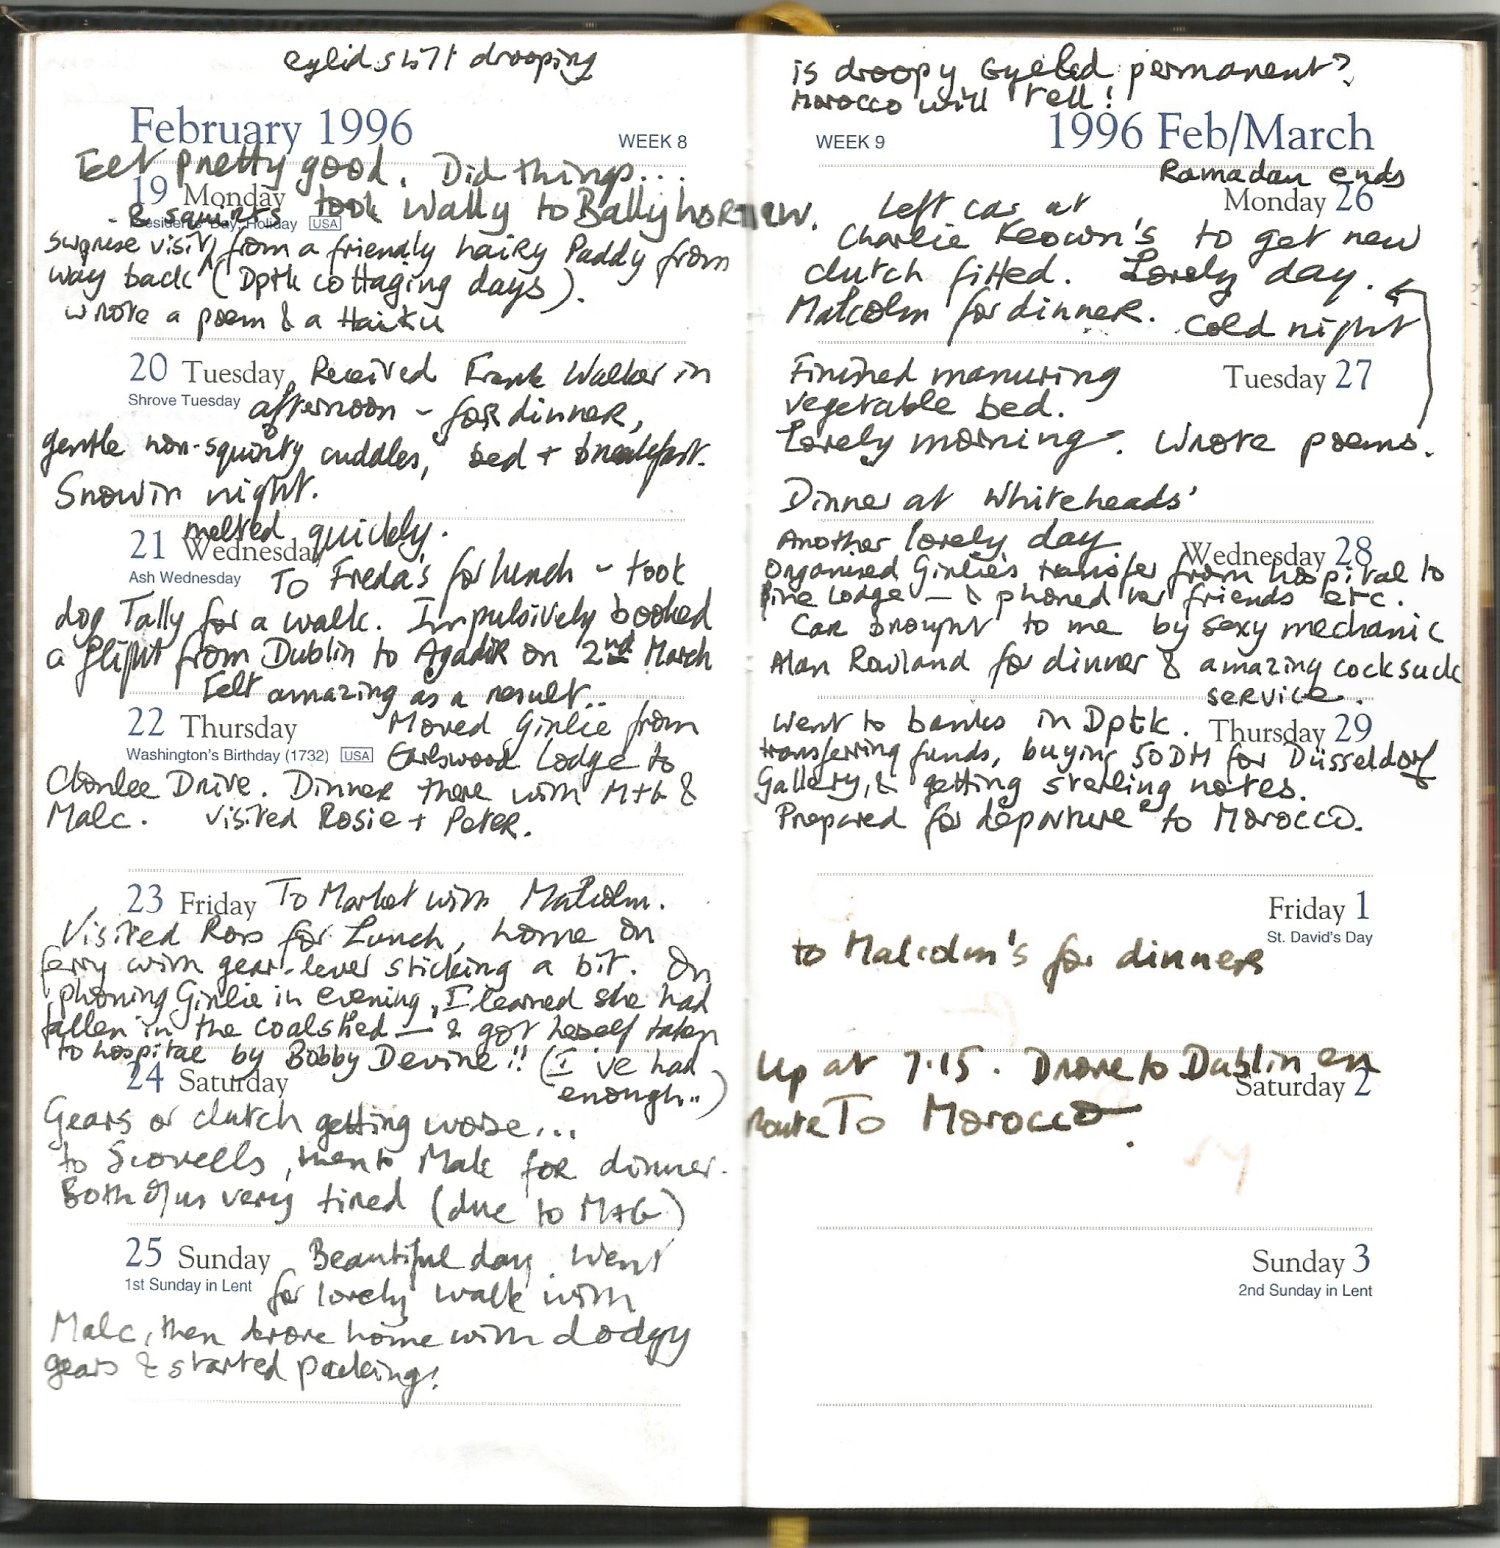 eyelid still drooping
February 1996
WEEK 8
Felt pretty good. Did things...
19 Monday
Presidents' Day, Holiday USA
took Wally to Ballyhornan.
& squirts
surprise visit from a friendly hairy Paddy from
way back (Dptk cottaging days).
wrote a poem & a Haiku
20 Tuesday Received Frank Walker in
Shrove Tuesday
afternoon – for dinner,
gentle non-squirty cuddles, bed + breakfast.
Snow in night.
melted quickly.
21 Wednesday
Ash Wednesday
To Freda's for lunch – took
dog Tally for a walk. Impulsively booked
a flight from Dublin to Agadir on 2nd March
Felt amazing as a result..
22 Thursday Moved Girlie from
Washington's Birthday (1732) USA
Earlswood Lodge to
Clonlee Drive. Dinner there with M+G &
Malc. Visited Rosie + Peter.
23 Friday To Market with Malcolm.
Visited Ross for Lunch, home on
ferry with gear-lever sticking a bit. On
phoning Girlie in evening, I learned she had
fallen in the coalshed — & got herself taken
to hospital by Bobby Devine!! (I've had
enough..)
24 Saturday
Gears or clutch getting worse...
to Scovells, then to Malc for dinner.
Both of us very tired (due to M+G)
25 Sunday Beautiful day. Went
1st Sunday in Lent
for lovely walk with
Malc, then drove home with dodgy
gears & started packing!
is droopy eyelid permanent?
Morocco will tell!
WEEK 9
1996 Feb/March
Ramadan ends
Monday 26
Left car at
Charlie Keown's to get new
clutch fitted. Lovely day.
Malcolm for dinner. Cold night
Finished manuring
Tuesday 27
vegetable bed.
Lovely morning. Wrote poems.
Dinner at Whiteheads'
Another lovely day.
Wednesday 28
Organised Girlie's transfer from hospital to
Pine Lodge — & phoned her friends etc.
Car brought to me by sexy mechanic
Alan Rowland for dinner & amazing cocksuck
service.
Went to banks in Dptk.
Thursday 29
transferring funds, buying 50DM for Düsseldorf
Gallery, & getting sterling notes.
Prepared for departure to Morocco.
Friday 1
St. David's Day
to Malcolm's for dinner
Up at 7.15. Drove to Dublin en
Saturday 2
route To Morocco.
Sunday 3
2nd Sunday in Lent